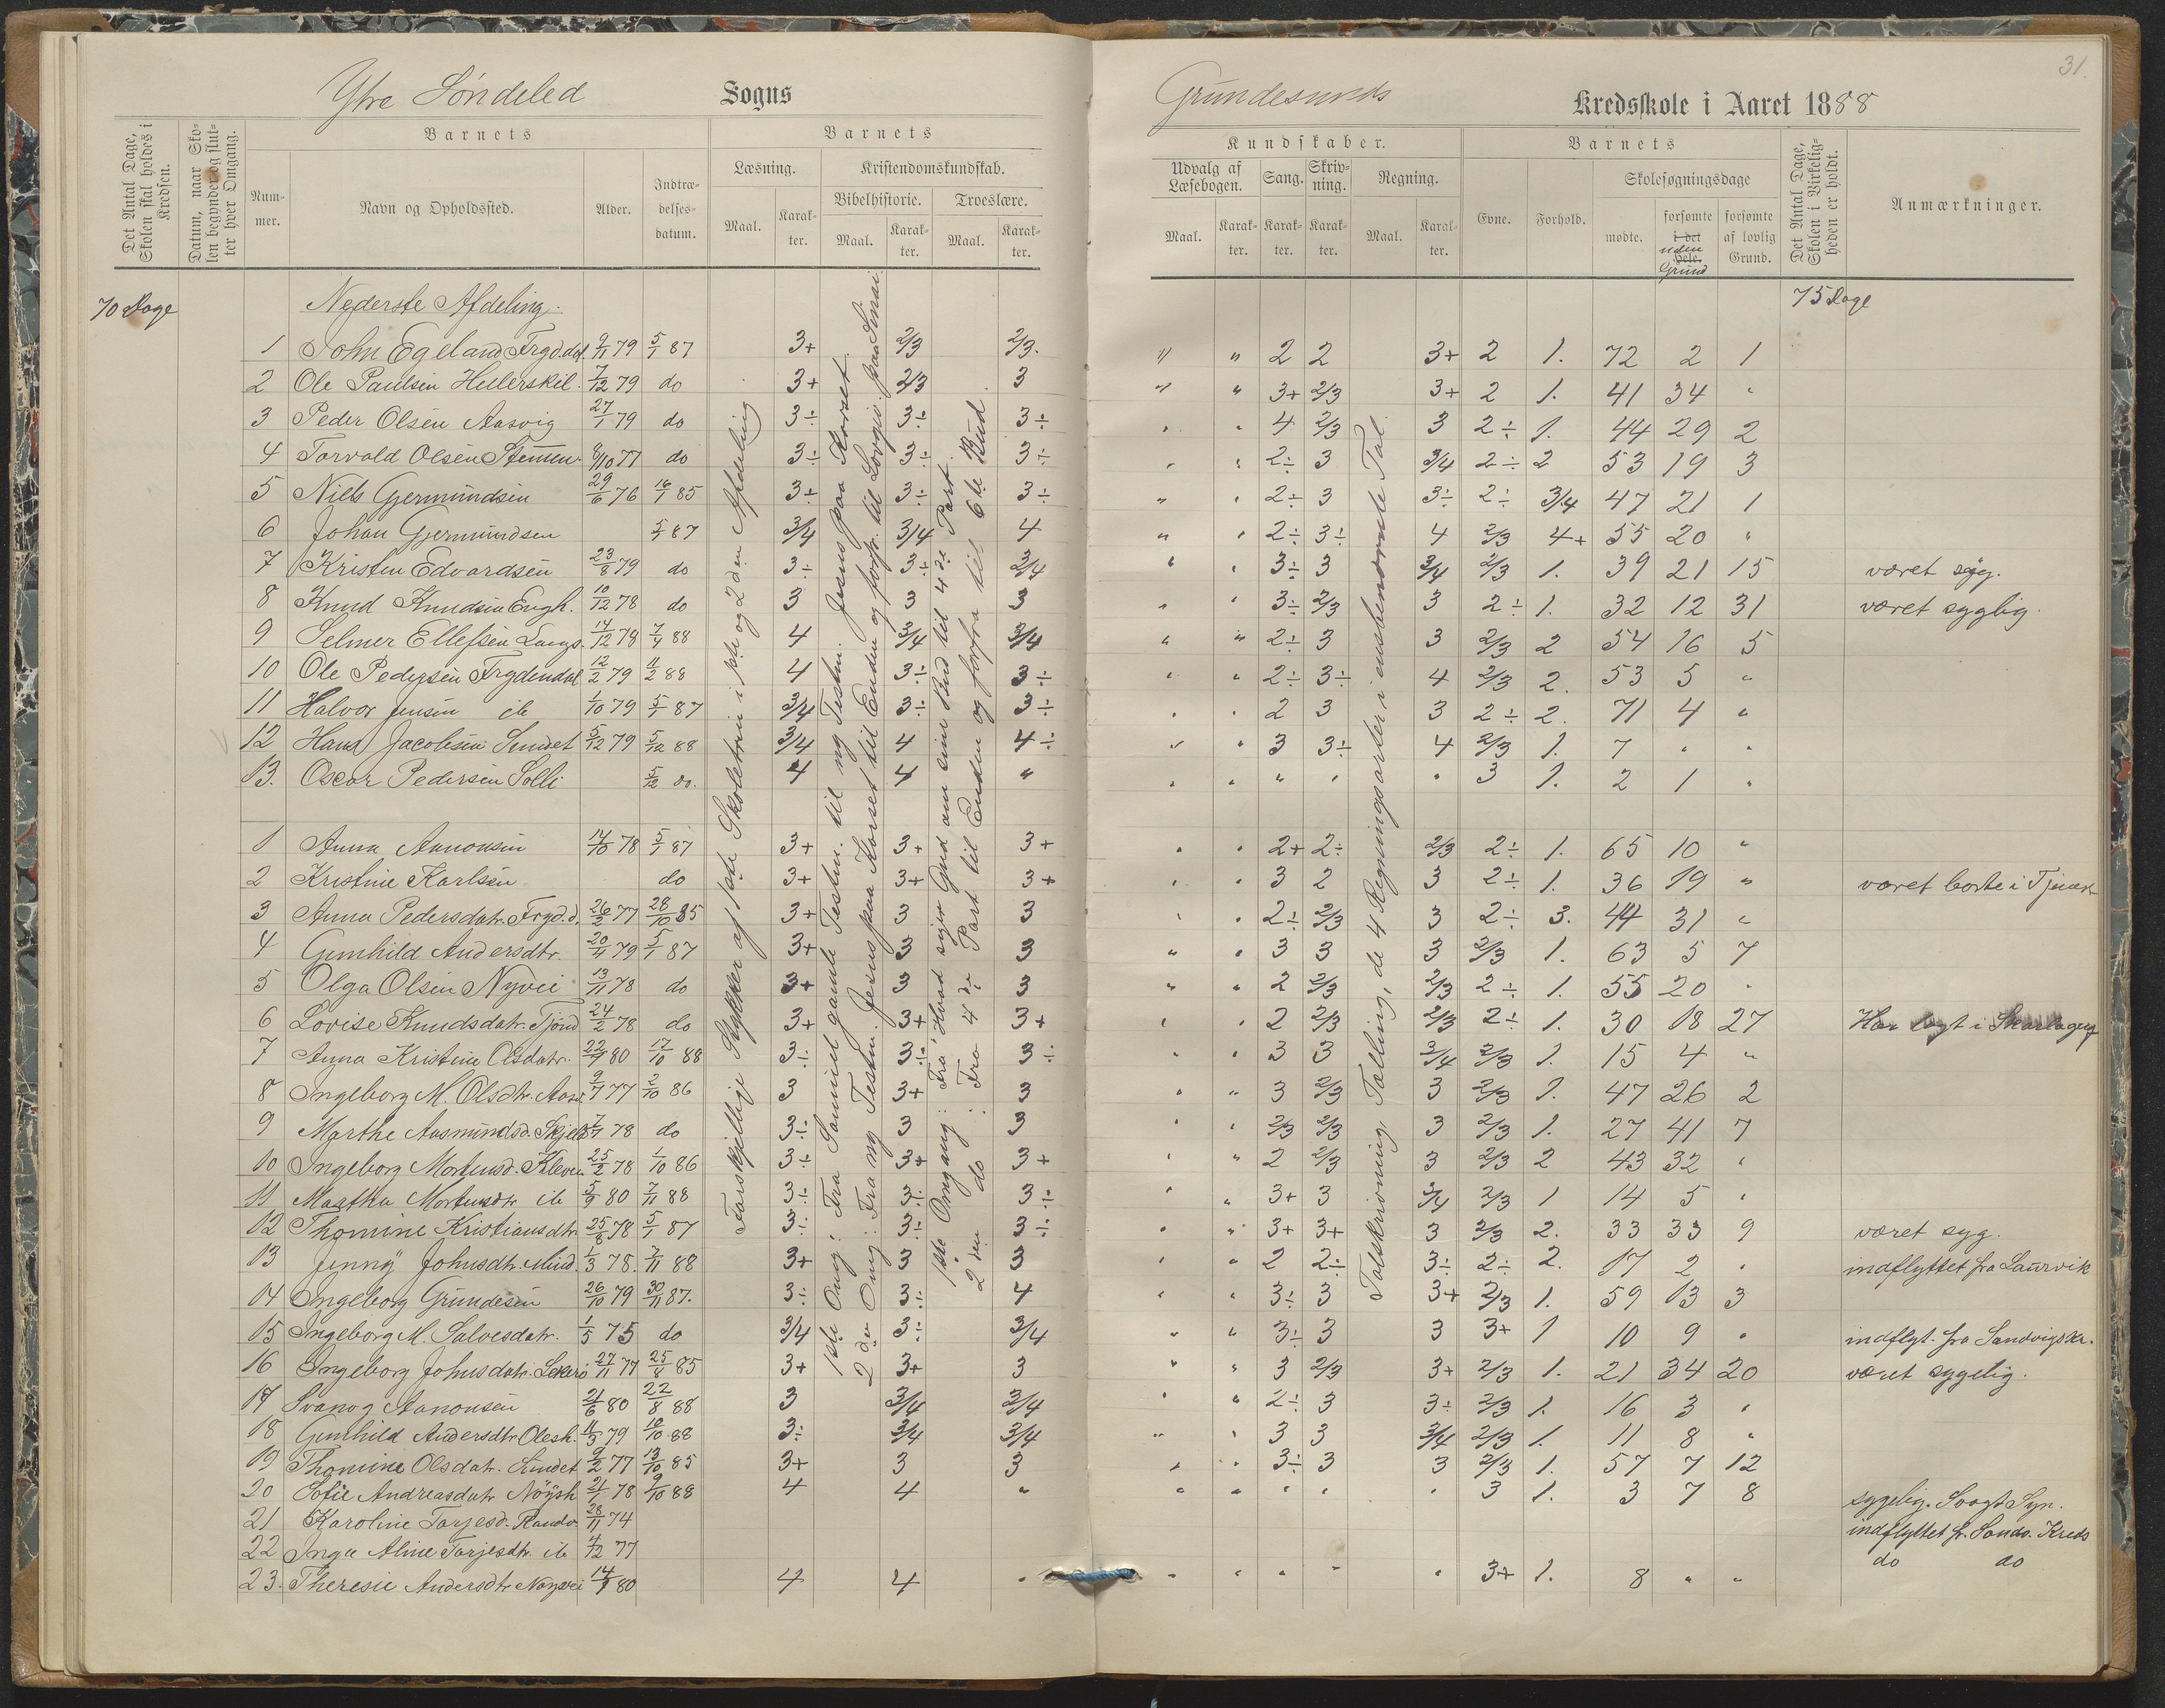 Ytre Söndeled Sogns
Grundesunds Kredsskole i Aaret 1888
31.
Det Antal Dage, Skolen skal holdes i Kredsen.
Datum, naar Skolen begynder og slutter hver Omgang.
Barnets
Nummer.
Navn og Opholdssted.
Alder.
Indtrædelsesdatum.
Barnets
Læsning.
Maal.
Karakter.
Kristendomskundskab.
Bibelhistorie.
Maal.
Karakter.
Troeslære.
Maal.
Karakter.
Kundskaber.
Udvalg af Læsebogen.
Maal.
Karakter.
Sang.
Karakter.
Skrivning.
Karakter.
Regning.
Maal.
Karakter.
Barnets
Evne.
Forhold.
Skolesøgningsdage
mødte.
forsømte i det Hele.
uden Grund
forsømte af lovlig Grund.
Det Antal Dage, Skolen i Virkeligheden er holdt.
Anmærkninger.
70 Dage Nederste Afdeling. 75 Dage
1 John Egeland Frgd.dal 9/11 79 5/1 87 3+ 2/3 2/3. " " 2 2 3+ 2 1. 72 2 1
2 Ole Paulsen Hellerskil. 7/12 79 do 3+ 2/3 3 " " 3+ 2/3 3+ 2 1. 41 34 "
3 Peder Olsen Aasvig 27/1 79 do 3÷ 3÷ 3÷ " " 4 2/3 3 2÷ 1. 44 29 2
4 Torvald Olsen 8/10 77 do 3÷ 3÷ 3÷ " " 2÷ 3 3/4 2÷ 2 53 19 3
5 Niels Gjermundsen 29/6 76 16/1 85 3÷ 3÷ 3÷ " " 2÷ 3 3÷ 2÷ 3/4 47 21 1
6 Johan Gjermundsen 5/1 87 3/4 3/4 4 " " 2÷ 3÷ 4 2/3 4+ 55 20 "
7 Kristen Edvardsen 23/8 79 do 3÷ 3÷ 3/4 " " 3÷ 3 3/4 2/3 1. 39 21 15 været syg.
8 Knud Knudsen Engh. 10/12 78 do 3 3 3 " " 3÷ 2/3 3 2÷ 1. 32 12 31 været syglig.
9 Selmer Ellefsen Langs. 14/12 78 7/4 88 4 3/4 3/4 " " 2÷ 3 3 2/3 2 54 16 5
10 Ole Pedersen Frydendal 12/2 79 11/2 88 4 3÷ 3÷ " " 2÷ 3÷ 4 2/3 2. 53 5 "
11 Halvor Jensen ib 1/10 79 5/1 87 3/4 3÷ 3÷ " " 2 3 3 2÷ 2. 71 4 "
12 Hans Jacobsen Sundet 5/12 79 5/12 88 3/4 4 4÷ " " 3 3÷ 4 2/3 1. 7 " "
13. Oscar Pedersen Solli 5/12 do. 4 4 " " " " " " 3 1. 2 1 "
1 Anna Aanonsen 14/10 78 5/1 87 3+ 3+ 3+ " " 2+ 2÷ 2/3 2÷ 1. 65 10 "
2 Kristine Karlsen do 3+ 3+ 3+ " " 3 2 3 2÷ 1. 36 19 " været borte i Tjenest
3 Anna Pedersdatr. Fryd.d. 26/3 77 28/10 85 3+ 3 3 " " 2÷ 2/3 3 2÷ 3. 44 31 "
4 Gunhild Andersdtr. 20/4 79 5/1 87 3+ 3 3 " " 3 3 3 2/3 1. 63 5 7
5 Olga Olsen Nyvei 13/11 78 do 3+ 3 3 " " 2 2/3 2/3 2÷ 1. 55 20 "
6 Lovise Knudsdatr. Tjönd 24/2 78 do 3+ 3+ 3+ " " 2 2/3 2/3 2÷ 1. 30 18 27 Har lagt i
7 Anna Kristine Olsdatr. 80 17/10 88 3÷ 3÷ 3÷ " " 3 3 3/4 2/3 1. 15 4 "
8 Ingeborg M. Olsdtr. Aasv. 9/7 77 2/10 86 3 3+ 3 " " 3 2/3 3 2/3 1. 47 26 2
9 Marthe Aasmundsd. 78 do 3÷ 3 3 " " 2/3 2/3 3 2/3 1. 27 41 7
10 Ingeborg Mortensd. Kleven 25/2 78 1/10 86 3÷ 3+ 3+ " " 2 2/3 3 2/3 2 43 32 "
11 Martha Mortensdtr ib 5/9 80 7/11 88 3÷ 3÷ 3÷ " " 3+ 3 3/4 2/3 1 14 5 "
12 Thomine Kristiansdtr. 25/8 78 5/1 87 3÷ 3÷ 3÷ " " 3+ 3+ 3 2/3 2. 33 33 9 været syg.
13 Jenny Johnsdtr. 1/3 78. 7/11 88 3+ 3 3 " " 2 2÷ 3÷ 2÷ 2. 17 2 " indflyttet fra Laurvik
14 Ingeborg Grundesen 26/10 79 30/11 87. 3÷ 3÷ 4 " " 3÷ 3 3+ 2/3 1. 59 13 3
15 Ingeborg M. Salvesdatr. 1/5 75 do 3/4 3÷ 3/4 " " 3÷ 3 3 3+ 1 10 9 " indflyt. fra
16 Ingeborg Johnsdatr. 27/11 77 25/8 85 3+ 3+ 3 " " 3 2/3 3+ 2/3 1. 21 34 20 været sygelig.
17 Svanog Aanonsen 2/6 80 22/8 88 3 3/4 3/4 " " 2÷ 3 3÷ 2/3 1. 16 3 "
18 Gunhild Andersdtr. 79 10/10 88 3÷ 3/4 3/4 " " 3 3 3/4 2/3 1. 11 8 "
19 Thomine Olsdatr. Sundet 9/2 77 13/10 85 3+ 3 3 " " 3÷ 3 3 2/3 1. 57 7 12
20 Sofie Andreasdatr 78 9/10 88 4 4 " " " " " " 3 1. 3 7 8 sygelig. Svagt Syn.
21 Karoline Tarjesd. 28/11 74 indflyttet fr. Sands. Kreds
22 Inga Aline Tarjesdtr. ib 4/12 77 do do
23. Theresie Andersdtr 80 4 4 " " " " " " 3+ 1. 8 " "
Forskjellige Stykker af 1ste Skoletrin i 1ste og 2den Afdeling
1ste Omg: Fra Samuel gamle Testm. til ny Testm. Jesus paa Korset.
2den Omg: Fra ny Testm. Jesus paa Korset til Enden og forfr. til Lovgiv. paa Sinai
1ste Omgang: Fra "Hvad siger Gud om sine Bud" til 4de Part.
2den do: Fra 4de Part til Enden og forfra til 6te Bud.
Talskrivning, Talläsning, de 4 Regningsarter i ensbenævnte Tal.